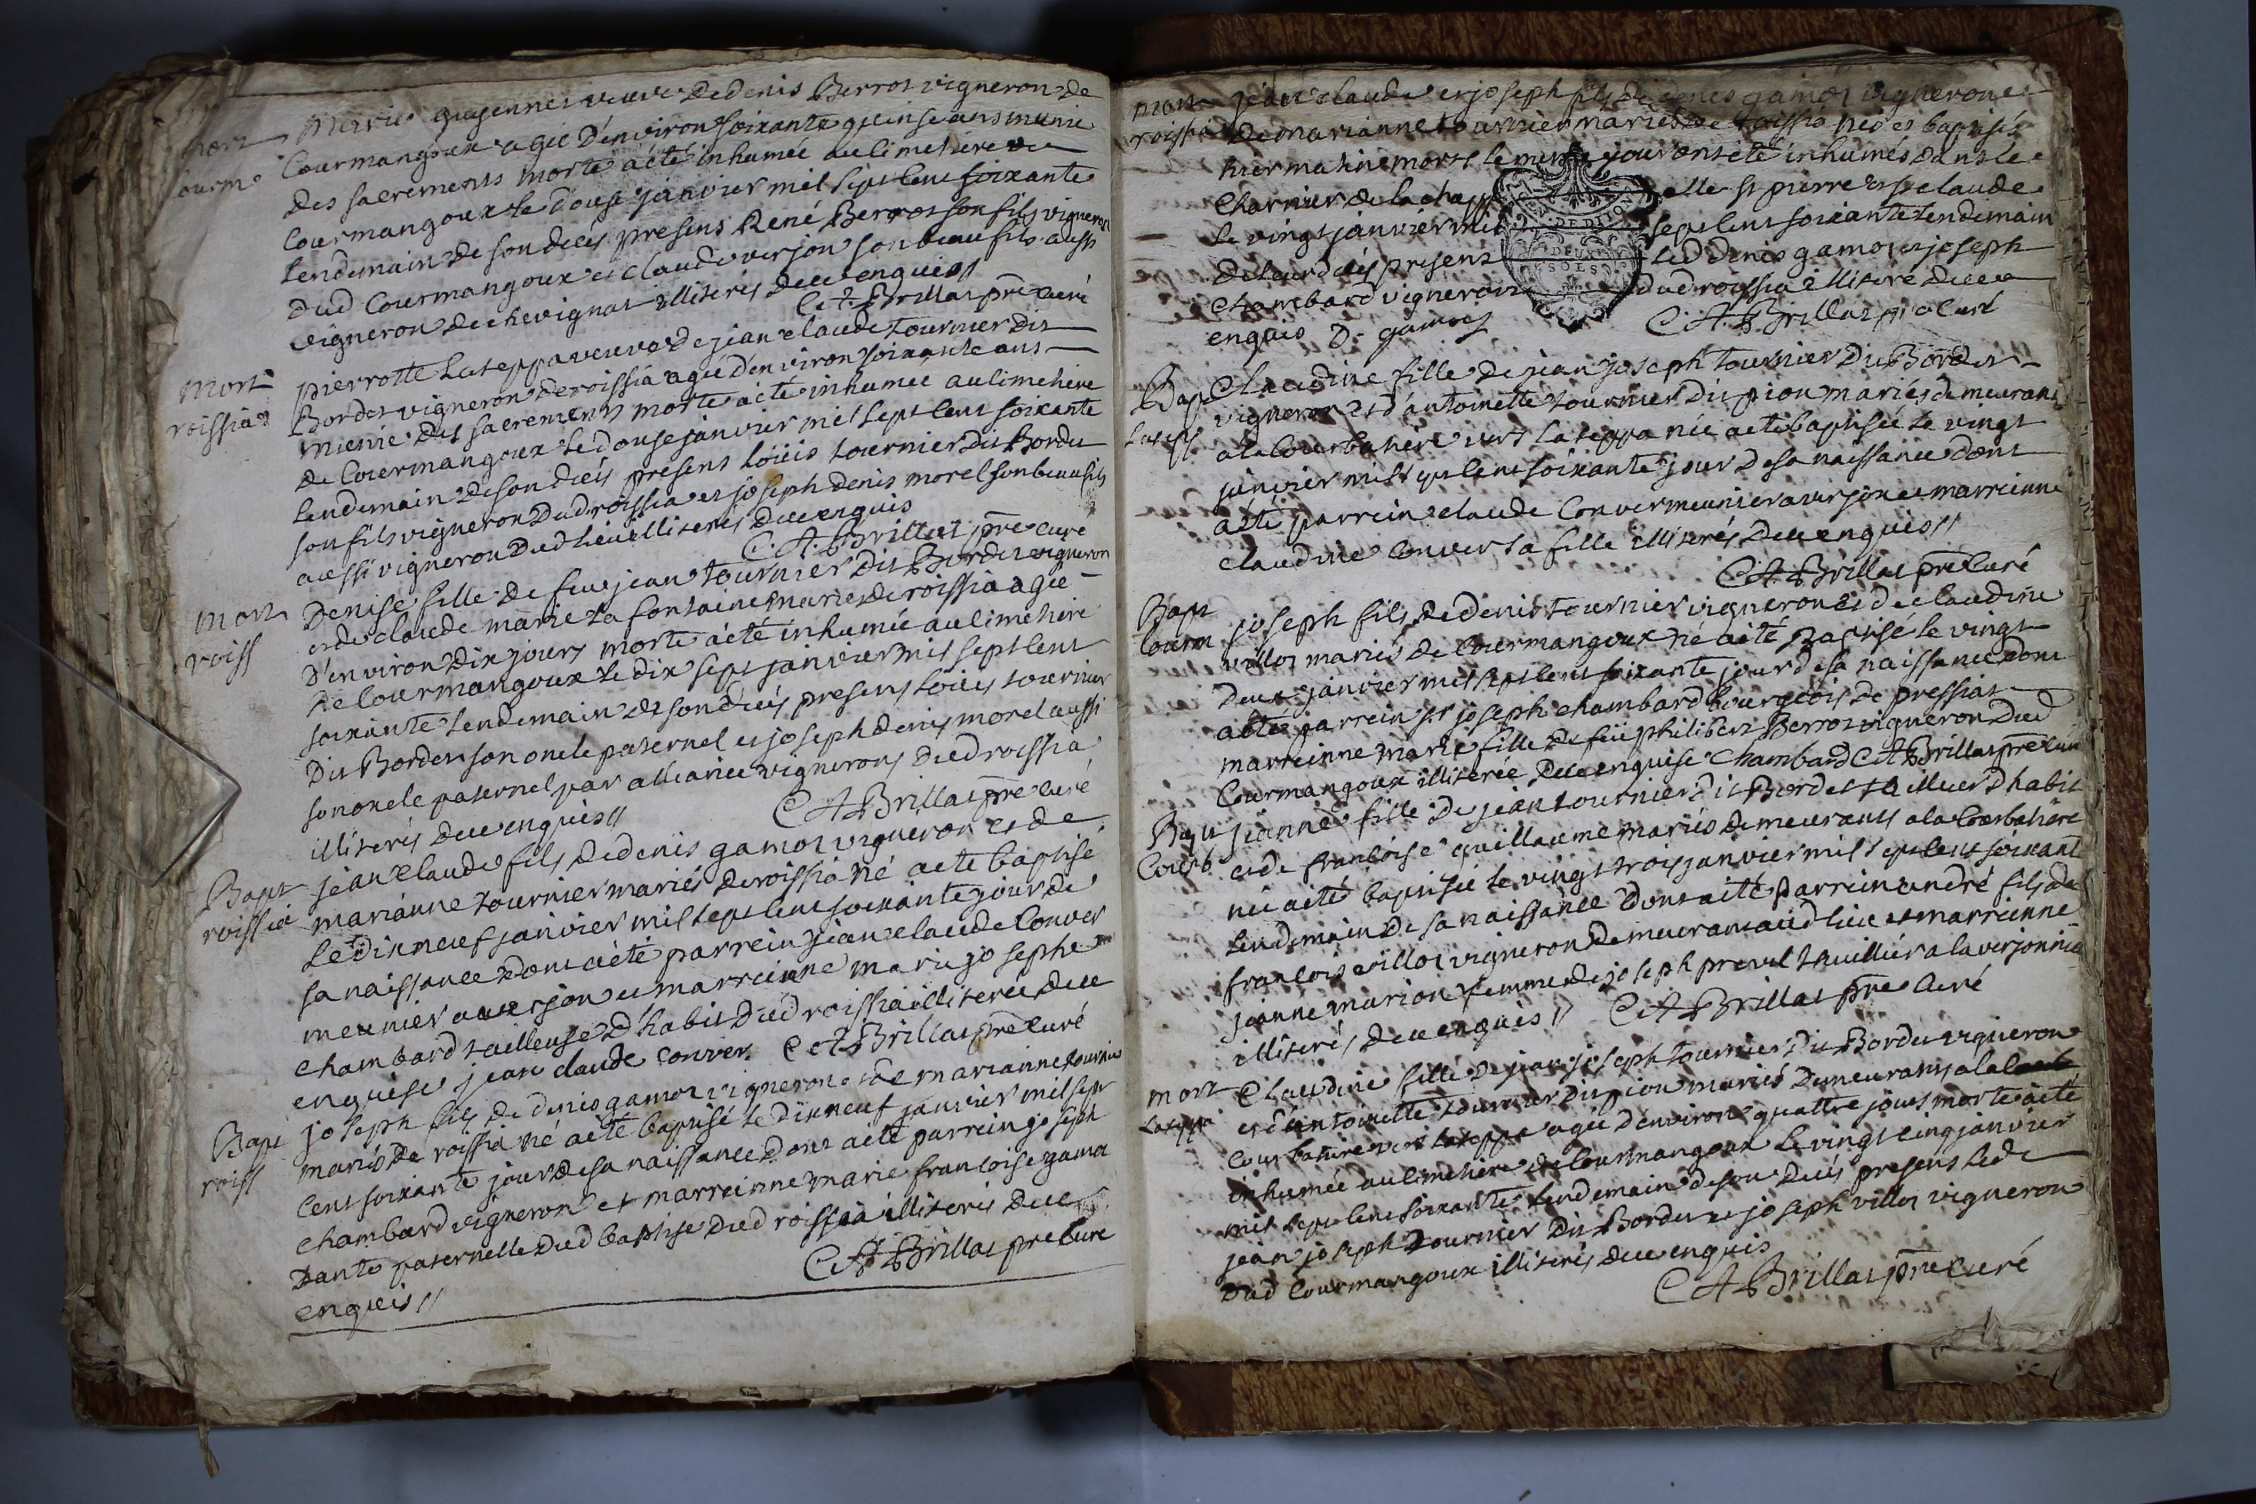 mort Marie guyennet veuve de denis Berrot vigneron de
Courm Courmangoux agée d'environ soixante quinse ans munie
des sacrements morte a été inhumée au cimetiere de
Courmangoux le douse janvier mil sept cent soixante
lendemain de son decés presens René Berrot son fils vigneron
dud Courmangoux et claude verjon son beau fils aussi
vigneron de chevignat illiterés de ce enquis//
C A Brillat pre curé
Mort pierrotte lateppa veuve de jean claude tournier dit
roissia Bordet vigneron de roissia agée d'environ soixante ans
munie des sacrements morte a été inhumée au cimetiere
de Courmangoux le douse janvier mil sept cent soixante
lendemain de son decés presens loüis tournier dit Bordet
son fils vigneron dud roissia et joseph denis morel son beau fils
aussi vigneron dud lieu illiterés de ce enquis
C. A. Brillat pre curé
mort Denise fille de feu jean tournier dit Bordet vigneron
roiss et de claude marie la fontaine mariés de roissia agée
d'environ dix jours morte a été inhumée au cimetiere
de Courmangoux le dix sept janvier mil sept cent
soixante lendemain de son decés presens loüis tournier
dit Bordet son oncle paternel et joseph denis morel aussi
son oncle paternel par alliance vignerons dud roissia
illiterés de ce enquis//
C A Brillat pre curé
Bapt jean claude fils de denis gamot vigneron et de
roissia marianne tournier mariés de roissia né a ete baptisé
le dix neuf janvier mil sept cent soixante jour de
sa naissance dont a été parrein jean claude Conver
meunier a verjon et marreinne marie josephe
chambard tailleuse d'habit dud roissia illiterée de ce
enquise jean claude conver C A Brillat pre curé
Bapt joseph fils de denis gamot vigneron et de marianne tournier
roiss mariés de roissia né a été baptisé le dix neuf janvier mil sept
cent soixante jour de sa naissance dont a été parrein joseph
chambard vigneron et marreinne marie francoise gamot
tante paternelle dud baptisé dud roissia illiterés de ce
C A Brillat pre curé
enquis//
mort jean claude et joseph fils de denis gamot vigneron et
roissia de marianne tournier mariés de roissia nés et baptisés
hier matin morts le meme jour ont été inhumés dans le
charnier de la chappelle st pierre et st claude
le vingt janvier mil sept cent soixante lendemain
de leur decés presens led denis gamot et joseph
chambard vigneron dud roissia illiteré de ce
enquis D. gamot C. A. Brillat pre curé
GEN DE DIJON
DEUX SOLS
Bapt Claudine fille de jean joseph tournier dit Bordet
latepp vigneron et d'antoinette tournier dit pion mariés demeurans
a la Courbatiere vers lateppa née a été baptisée le vingt
janvier mil sept cent soixante jour de sa naissance dont
a été parrein claude Conver meunier a verjon et marreinne
claudine Conver sa fille illiterés de ce enquis//
C A Brillat pre Curé
Bapt joseph fils de denis tournier vigneron et de claudine
Courm villot mariés de Courmangoux né a été Baptisé le vingt
deux janvier mil sept cent soixante jour de sa naissance dont
a été parrein sr joseph chambard bourgeois de pressiat
marreinne marie fille de feü philibert Berrot vigneron dud
Courmangoux illiterée de ce enquise Chambard C A Brillat pre curé
Bapt jeanne fille de jean tournier dit Bordet tailleur d'habit
Courb et de francoise guillaume mariés demeurants a la Courbatiere
née a été baptisée le vingt trois janvier mil sept cent soixante
lendemain de sa naissance dont a été parrein andré fils de
francois villot vigneron demeurant aud lieu et marreinne
jeanne marion femme de joseph prevel tuillier a la verjonniere
illiterés de ce enquis// C A Brillat pre curé
mort Claudine fille de jean joseph tournier dit Bordet vigneron
lateppa et d'antoinette tournier dit pion mariés demeurans a la
Courbatiere vers lateppa agée d'environ quattre jours morte a été
inhumée au cimetiere de Courmangoux le vingt cinq janvier
mil sept cent soixante lendemain de son decés presens led
jean joseph tournier dit Bordet et joseph villot vigneron
dud Courmangoux illiterés de ce enquis
C A Brillat pre curé